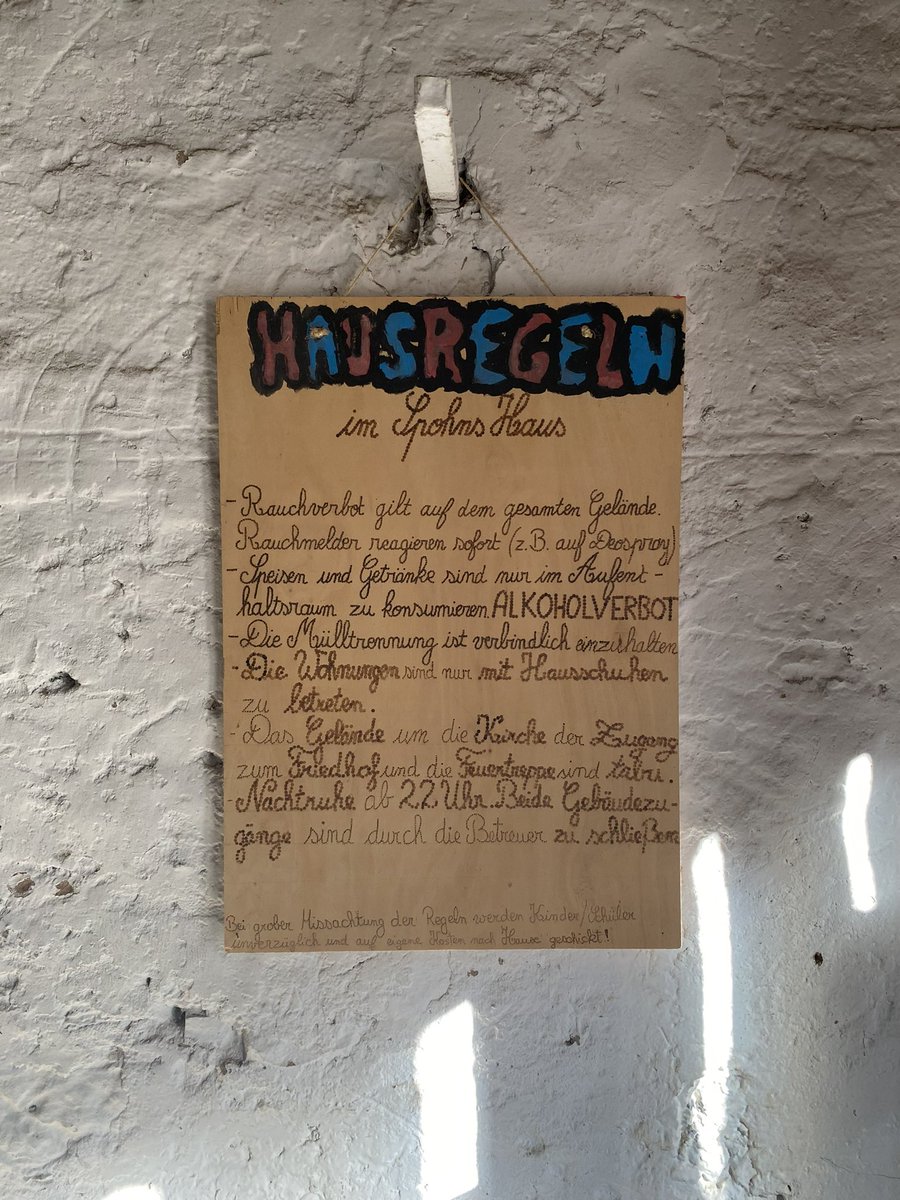 HAUSREGELN
im Spohns Haus
- Rauchverbot gilt auf dem gesamten Gelände.
Rauchmelder reagieren sofort (z.B. auf Deospray)
- Speisen und Getränke sind nur im Aufent-
haltsraum zu konsumieren. ALKOHOLVERBOT
- Die Mülltronnung ist verbindlich einzuhalten
- Die Wohnungen sind nur mit Hausschuhen
zu betreten.
- Das Gelände um die Kirche der Zugang
zum Friedhof und die Feuertreppe sind tabu.
- Nachtruhe ab 22 Uhr. Beide Gebäudezu-
gänge sind durch die Betreuer zu schließen
Bei grober Missachtung der Regeln werden Kinder/Schüler
unverzüglich und auf eigene Kosten nach Hause geschickt!